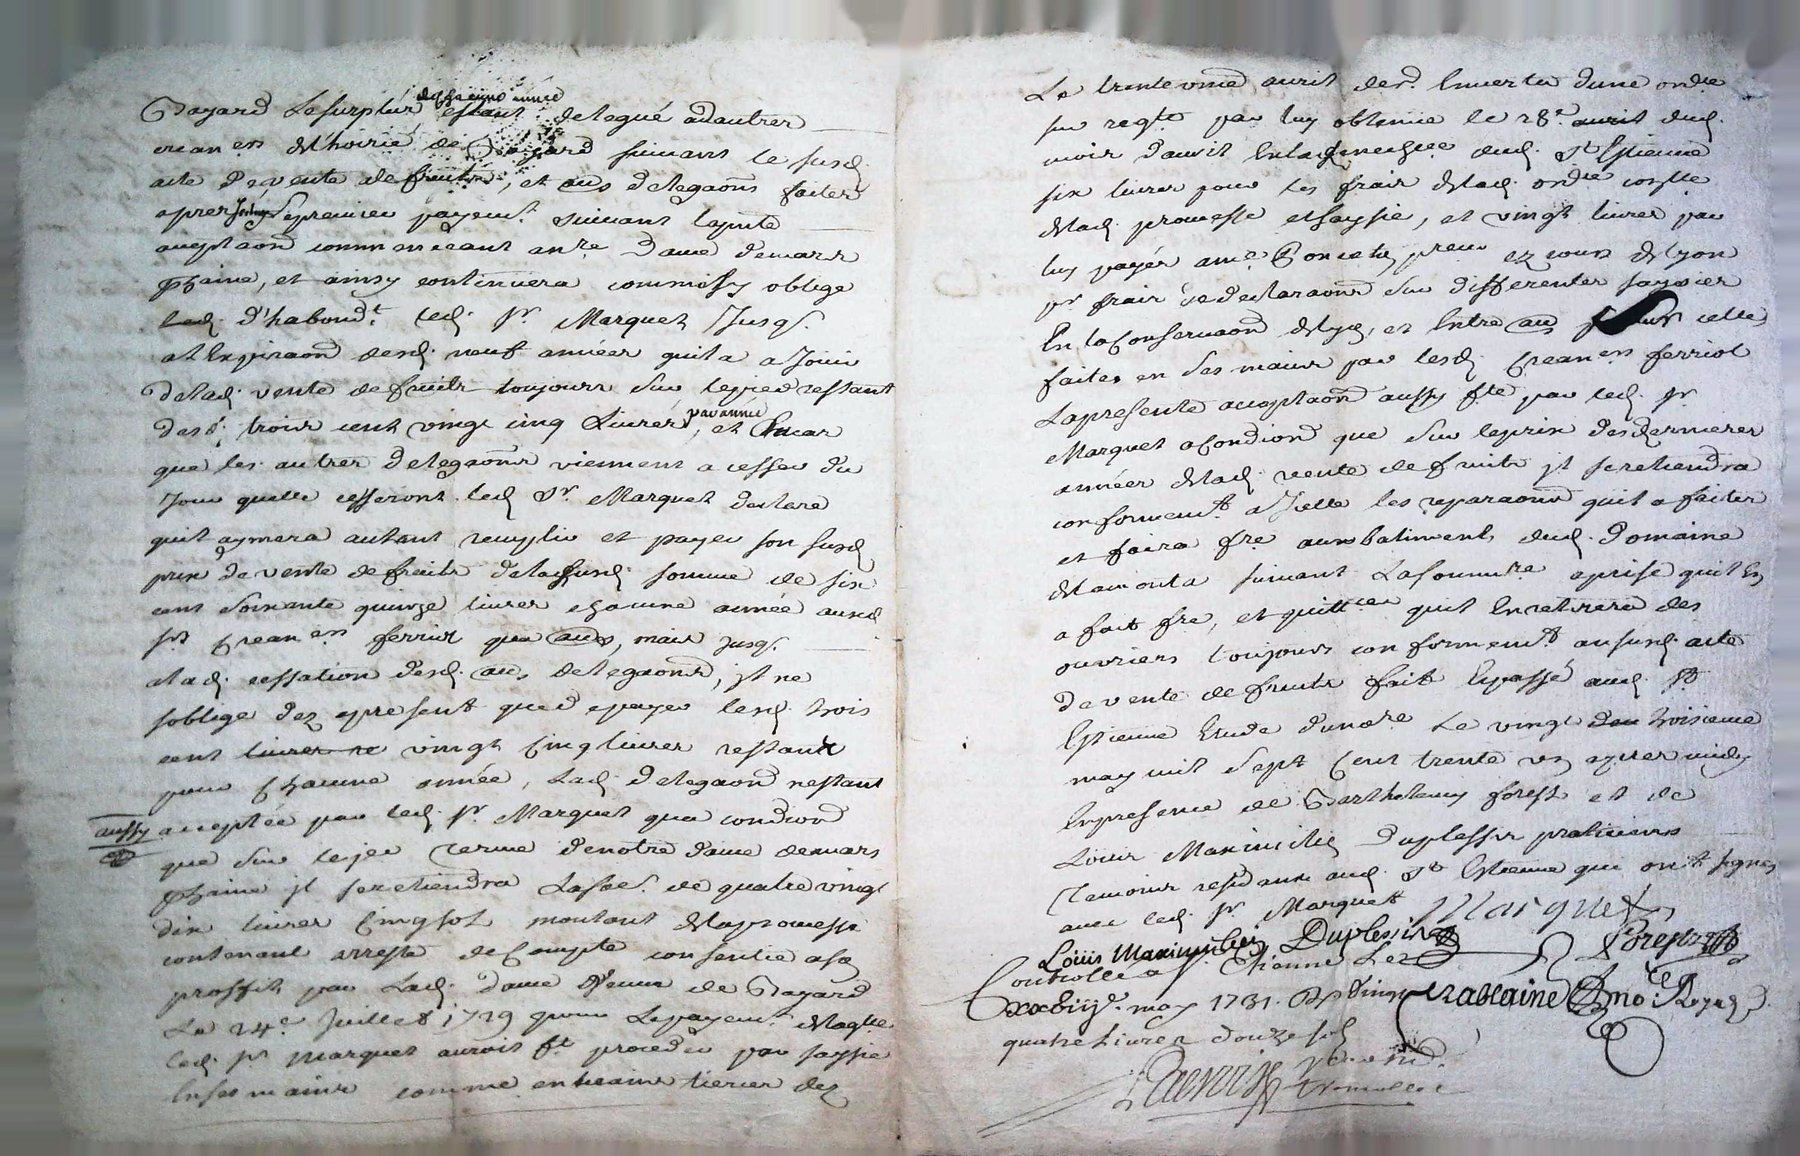 de chacune année
Bayard le surplus estant delegué a dautres
crean ers dhoirie de Bayard suivant le susd.
acte de vente de fruits, et aus delegaons faites
apres led. premier payemt suivant lapnte
acceptaon commancant a nre Dame de mars
pchaine, et ainsy continuera comme il sy oblige
led. d'habondt led. sr. Marquet Jusqs.
a lexpiraon desd. neuf années quil a a Jouir
de lad. vente de fruits toujours sur le pied restant
desd. trois cent vingt cinq Livres par année, et En cas
que les autres delegaons viennent a cesser du
Jour quelle cesseront led. Sr. Marquet declare
quil aymera autant remplir et payer son susd.
prix de vente de fruits de la susd. somme de six
cent soixante quinze livres chacune année ausd.
srs creaners ferriol qua aus, mais Jusqs.
a lad. cessation desd. aus delegaons, jl ne
soblige dez apresent que de payer lesd. trois
cent livres vingt Cinq livres restant
pour Chacune année, Lad. delegaon restant
aussy acceptée par led. sr. Marquet qua condiond
que sur le jer terme de notre dame de mars
pchaine jl se retiendra La soe. de quatre vingt
dix livres Cinq sols montant de la promesse
contenant arresté de Compte consentie a son
proffit par Lad. dame veuve de Bayard
Le 24e Juillet 1729 pour Le payemt de laqlle
led. sr. marquet auroit ft proceder par saysie
En ses mains comme en treains tierces dez
Le trente uniē avril der. En vertu dune ordce
sur reqte par luy obtenue le 28e. avril dud.
mois davril En la dud. St Estienne
six livres pour les frais de lad. ordce
de lad. promesse et saysie, et vingt livres par
luy payés a me Poncet procur ez cours de lyon
pr. frais de declaraons sur differentes saysies
En la Conservaon de lyon, et Entre aus celles
faites en ses mains par lesd. Creaners ferriol
La presente acceptaon aussy fte par led. sr
Marquet a Condiond que sur le prix des dernieres
années de lad. vente de fruits jl se retiendra
conformemt. a Jcelle les reparaons quil a faites
et faira fre aux batiments dud. Domaine
de lamonta suivant La sommre aprise quil En
a fait fre, et quittces quil En retirera des
ouvriers toujours conformemt. au susd. acte
de vente de fruits fait Et passé aud. St
Estienne Etude du nore Le vingt deu troisieme
may mil sept Cent trente un apres midy
En presence de Barthelemy forest et de
Louis Maximilien Duplessis praticiens
Temoins residants aud. St Estienne qui ont signé
avec led. sr. Marquet Marquet
Louis Maximilien Duplessis Forest
Controllé a St. Etienne Le
xxviije. may 1731. Rs Vingt Royal
quatre Livres douze sols